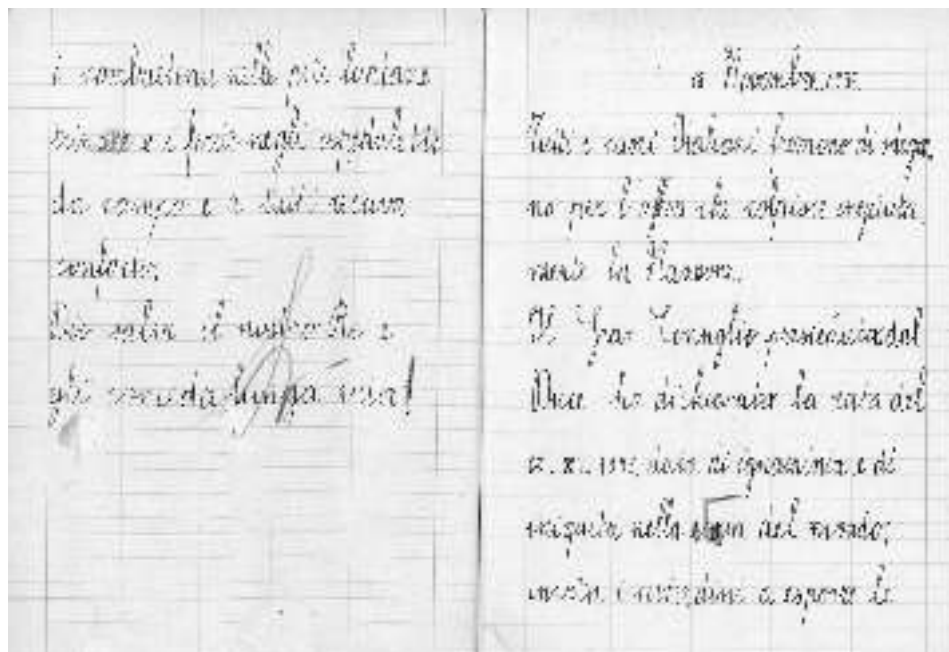 i combattenti nelle più lontane
e i feriti negli ospedaletti
da campo e a tutti
conforto.
Dio salvi il nostro Re e
gli conceda lunga vita!
Novembre
Tutti i cuori Italiani fremono di sdegno
no per l'offesa che colpisce
mente la Nazione.
Il Gran Consiglio presieduto dal
Duce ha dichiarato la data del
data di ignominia e di
iniquità nella storia del mondo;
invita i cittadini a esporre le